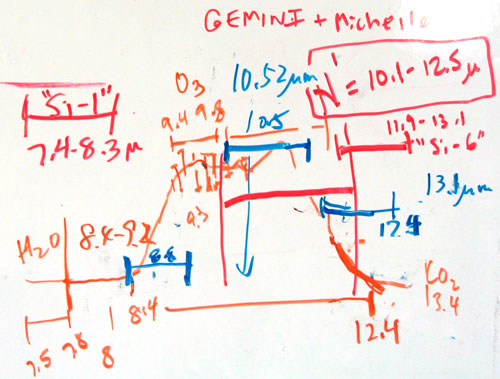 GEMINI + Michelle
N' = 10.1 - 12.5 µ
O3
10.52 µm
"Si-1"
9.4 9.8
10.5
11.9 - 13.1
"Si-6"
7.4-8.3 µ
13.1 µm
9.3
H2O
8.4-9.2
8.8
CO2
13.4
8.4
12.4
7.5 7.8
8